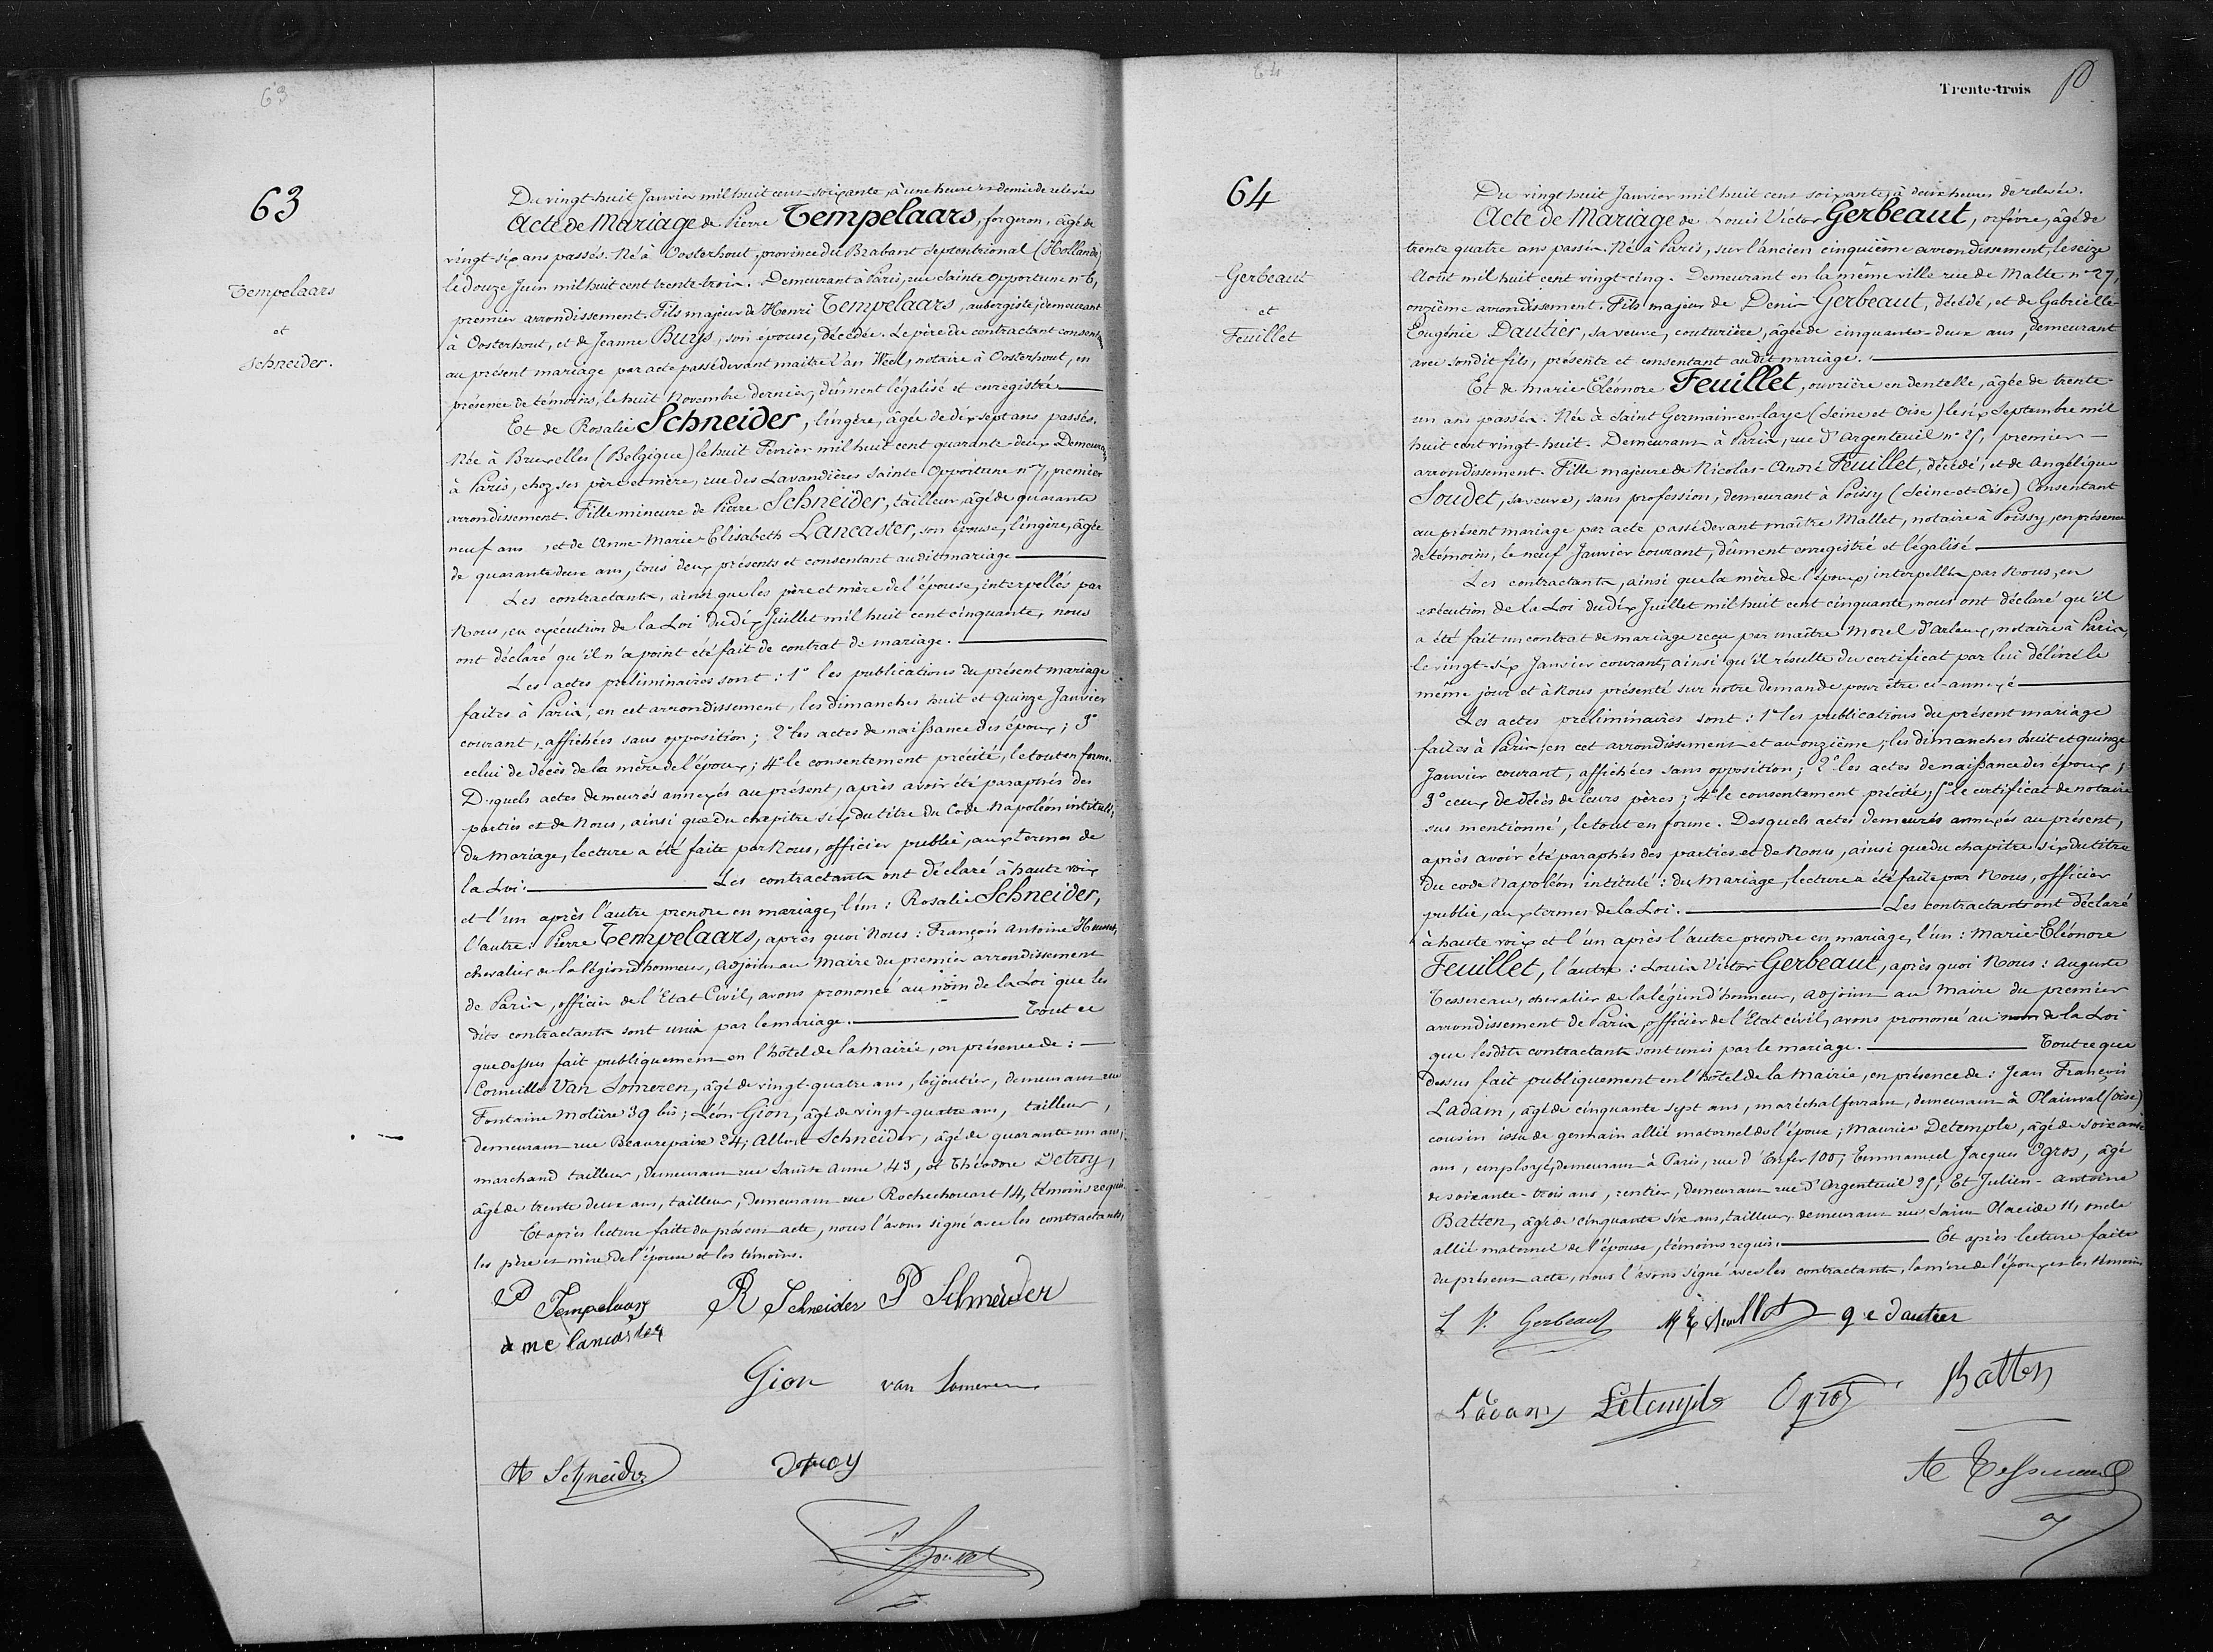 63
63
Tempelaars
et
Schneider.
Du vingt-huit Janvier mil huit cent soixante, à une heure et demie de relevée
Acte de Mariage de Pierre Tempelaars, forgeron, âgé de
vingt-six ans passés. Né à Oosterhout, province du Brabant Septentrional (Hollande)
le douze Juin mil huit cent trente-trois. Demeurant à Paris, rue Sainte Opportune n° 6,
premier arrondissement. Fils majeur de Henri Tempelaars, aubergiste, demeurant
à Oosterhout, et de Jeanne Buys, son épouse, décédée. Le père du contractant consentant
au présent mariage par acte passé devant maître Van Weel, notaire à Oosterhout, en
présence de témoins, le huit Novembre dernier, dûment légalisé et enregistré
Et de Rosalie Schneider, lingère, âgée de dix sept ans passés.
Née à Bruxelles (Belgique) le huit Février mil huit cent quarante deux. Demeurant
à Paris, chez ses père et mère, rue des Lavandières Sainte Opportune n° 7, premier
arrondissement. Fille mineure de Pierre Schneider, tailleur, âgé de quarante
neuf ans, et de Anne-Marie-Elisabeth Lancaster, son épouse, lingère, âgée
de quarante deux ans, tous deux présents et consentant audit mariage
Les contractants, ainsi que les père et mère de l'épouse, interpellés par
Nous, en exécution de la Loi du dix Juillet mil huit cent cinquante, nous
ont déclaré qu'il n'a point été fait de contrat de mariage.
Les actes préliminaires sont : 1° les publications du présent mariage
faites à Paris, en cet arrondissement, les dimanches huit et quinze Janvier
courant, affichées sans opposition ; 2° les actes de naissance des époux ; 3°
celui de décès de la mère de l'époux ; 4° le consentement précité, le tout en forme.
Desquels actes demeurés annexés au présent, après avoir été paraphés des
parties et de Nous, ainsi que du chapitre six du titre du Code Napoléon intitulé :
du Mariage, lecture a été faite par Nous, officier public, aux termes de
la Loi. Les contractants ont déclaré à haute voix
et l'un après l'autre prendre en mariage, l'un : Rosalie Schneider,
l'autre : Pierre Tempelaars, après quoi Nous : François Antoine
chevalier de la légion d'honneur, adjoint au Maire du premier arrondissement
de Paris, officier de l'Etat Civil, avons prononcé au nom de la Loi que les
dits contractants sont unis par le mariage. Tout ce
que dessus fait publiquement en l'hôtel de la Mairie, en présence de :
Corneille Van Someren, âgé de vingt-quatre ans, bijoutier, demeurant rue
Fontaine Molière 39 bis ; Léon Gion, âgé de vingt-quatre ans, tailleur,
demeurant rue Beaurepaire 24 ; Albert Schneider, âgé de quarante un ans,
marchand tailleur, demeurant rue Sainte Anne 43, et Théodore Detroy,
âgé de trente deux ans, tailleur, demeurant rue Rochechouart 14, témoins requis.
Et après lecture faite du présent acte, nous l'avons signé avec les contractants,
les père et mère de l'épouse et les témoins.
P Tempelaars R Schneider P Schneider
a m e lancaster
Gion van Someren
A Schneider Detroy
64
Trente-trois
64
Gerbeaut
et
Feuillet
Du vingt huit Janvier mil huit cent soixante, à deux heures de relevée.
Acte de Mariage de Louis Victor Gerbeaut, orfèvre, âgé de
trente quatre ans passés. Né à Paris, sur l'ancien cinquième arrondissement, le seize
Août mil huit cent vingt-cinq. Demeurant en la même ville rue de Malte n° 27,
onzième arrondissement. Fils majeur de Denis Gerbeaut, décédé, et de Gabrielle
Eugénie Dautier, sa veuve, couturière, âgée de cinquante-deux ans, demeurant
avec sondit fils, présente et consentant audit mariage.
Et de Marie-Eléonore Feuillet, ouvrière en dentelle, âgée de trente-
un ans passés. Née à Saint Germain-en-laye (Seine et Oise) le six Septembre mil
huit cent vingt-huit. Demeurant à Paris, rue d'Argenteuil n° 25, premier
arrondissement. Fille majeure de Nicolas-André Feuillet, décédé, et de Angélique
Soudet, sa veuve, sans profession, demeurant à Poissy (Seine-et-Oise) Consentant
au présent mariage par acte passé devant maître Mallet, notaire à Poissy, en présence
de témoins, le neuf Janvier courant, dûment enregistré et légalisé
Les contractants, ainsi que la mère de l'époux, interpellés par Nous, en
exécution de la Loi du dix Juillet mil huit cent cinquante, nous ont déclaré qu'il
a été fait un contrat de mariage reçu par maître Morel d'Arleux, notaire à Paris,
le vingt-six Janvier courant, ainsi qu'il résulte du certificat par lui délivré le
même jour et à Nous présenté sur notre demande pour être ci-annexé
Les actes préliminaires sont : 1° les publications du présent mariage
faites à Paris, en cet arrondissement et au onzième, les dimanches huit et quinze
Janvier courant, affichées sans opposition ; 2° les actes de naissance des époux ;
3° ceux de décès de leurs pères ; 4° le consentement précité ; 5° le certificat de notaire
sus mentionné, le tout en forme. Desquels actes demeurés annexés au présent,
après avoir été paraphés des parties et de Nous, ainsi que du chapitre six du titre
du code Napoléon intitulé : du Mariage, lecture a été faite par Nous, officier
public, aux termes de la Loi. Les contractants ont déclaré
à haute voix et l'un après l'autre prendre en mariage, l'un : Marie-Eléonore
Feuillet, l'autre : Louis Victor Gerbeaut, après quoi Nous : Auguste
Tessereau, chevalier de la légion d'honneur, adjoint au Maire du premier
arrondissement de Paris, officier de l'Etat civil, avons prononcé au nom de la Loi
que lesdits contractants sont unis par le mariage. Tout ce que
dessus fait publiquement en l'hôtel de la Mairie, en présence de : Jean François
Ladam, âgé de cinquante sept ans, maréchal ferrant, demeurant à Plainval (oise)
cousin issu de germain allié maternel de l'époux ; Maurice Detemple, âgé de soixante
ans, employé, demeurant à Paris, rue d'Enfer 100 ; Emmanuel Jacques Ogros, âgé
de soixante-trois ans, rentier, demeurant rue d'Argenteuil 25 ; Et Julien-Antoine
Batten, âgé de cinquante six ans, tailleur, demeurant rue Saint Placide 11, oncle
allié maternel de l'épouse, témoins requis. Et après lecture faite
du présent acte, nous l'avons signé avec les contractants, la mère de l'époux et les témoins
L V. Gerbeaut M E feuillet g e dautier
Ladam Detemple Ogros Batten
A Tessereau